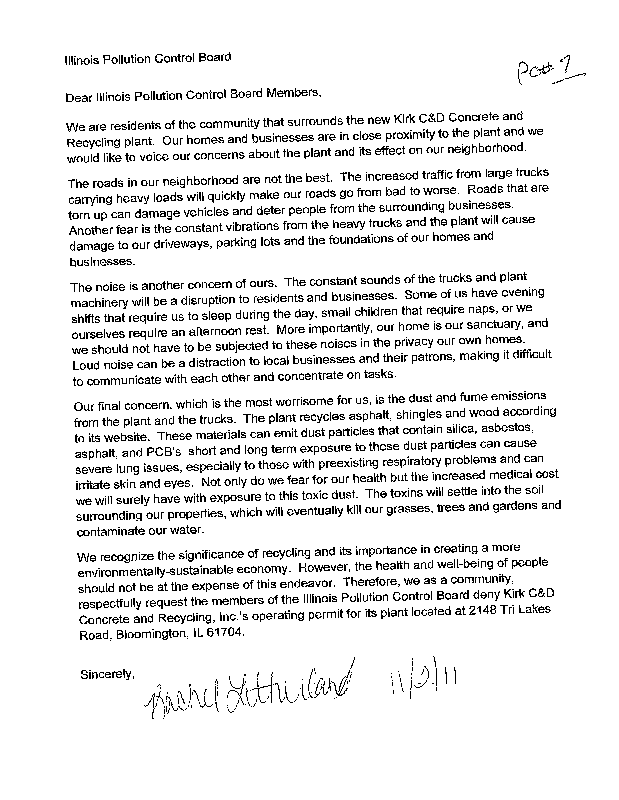 Illinois Pollution Control Board
PC# 7
Dear Illinois Pollution Control Board Members,
We are residents of the community that surrounds the new Kirk C&D Concrete and
Recycling plant. Our homes and businesses are in close proximity to the plant and we
would like to voice our concerns about the plant and its effect on our neighborhood.
The roads in our neighborhood are not the best. The increased traffic from large trucks
carrying heavy loads will quickly make our roads go from bad to worse. Roads that are
torn up can damage vehicles and deter people from the surrounding businesses.
Another fear is the constant vibrations from the heavy trucks and the plant will cause
damage to our driveways, parking lots and the foundations of our homes and
businesses.
The noise is another concern of ours. The constant sounds of the trucks and plant
machinery will be a disruption to residents and businesses. Some of us have evening
shifts that require us to sleep during the day, small children that require naps, or we
ourselves require an afternoon rest. More importantly, our home is our sanctuary, and
we should not have to be subjected to these noises in the privacy our own homes.
Loud noise can be a distraction to local businesses and their patrons, making it difficult
to communicate with each other and concentrate on tasks.
Our final concern, which is the most worrisome for us, is the dust and fume emissions
from the plant and the trucks. The plant recycles asphalt, shingles and wood according
to its website. These materials can emit dust particles that contain silica, asbestos,
asphalt, and PCB's short and long term exposure to these dust particles can cause
severe lung issues, especially to those with preexisting respiratory problems and can
irritate skin and eyes. Not only do we fear for our health but the increased medical cost
we will surely have with exposure to this toxic dust. The toxins will settle into the soil
surrounding our properties, which will eventually kill our grasses, trees and gardens and
contaminate our water.
We recognize the significance of recycling and its importance in creating a more
environmentally-sustainable economy. However, the health and well-being of people
should not be at the expense of this endeavor. Therefore, we as a community,
respectfully request the members of the Illinois Pollution Control Board deny Kirk C&D
Concrete and Recycling, Inc.'s operating permit for its plant located at 2148 Tri Lakes
Road, Bloomington, IL 61704.
Sincerely,
Rachel 11/2/11